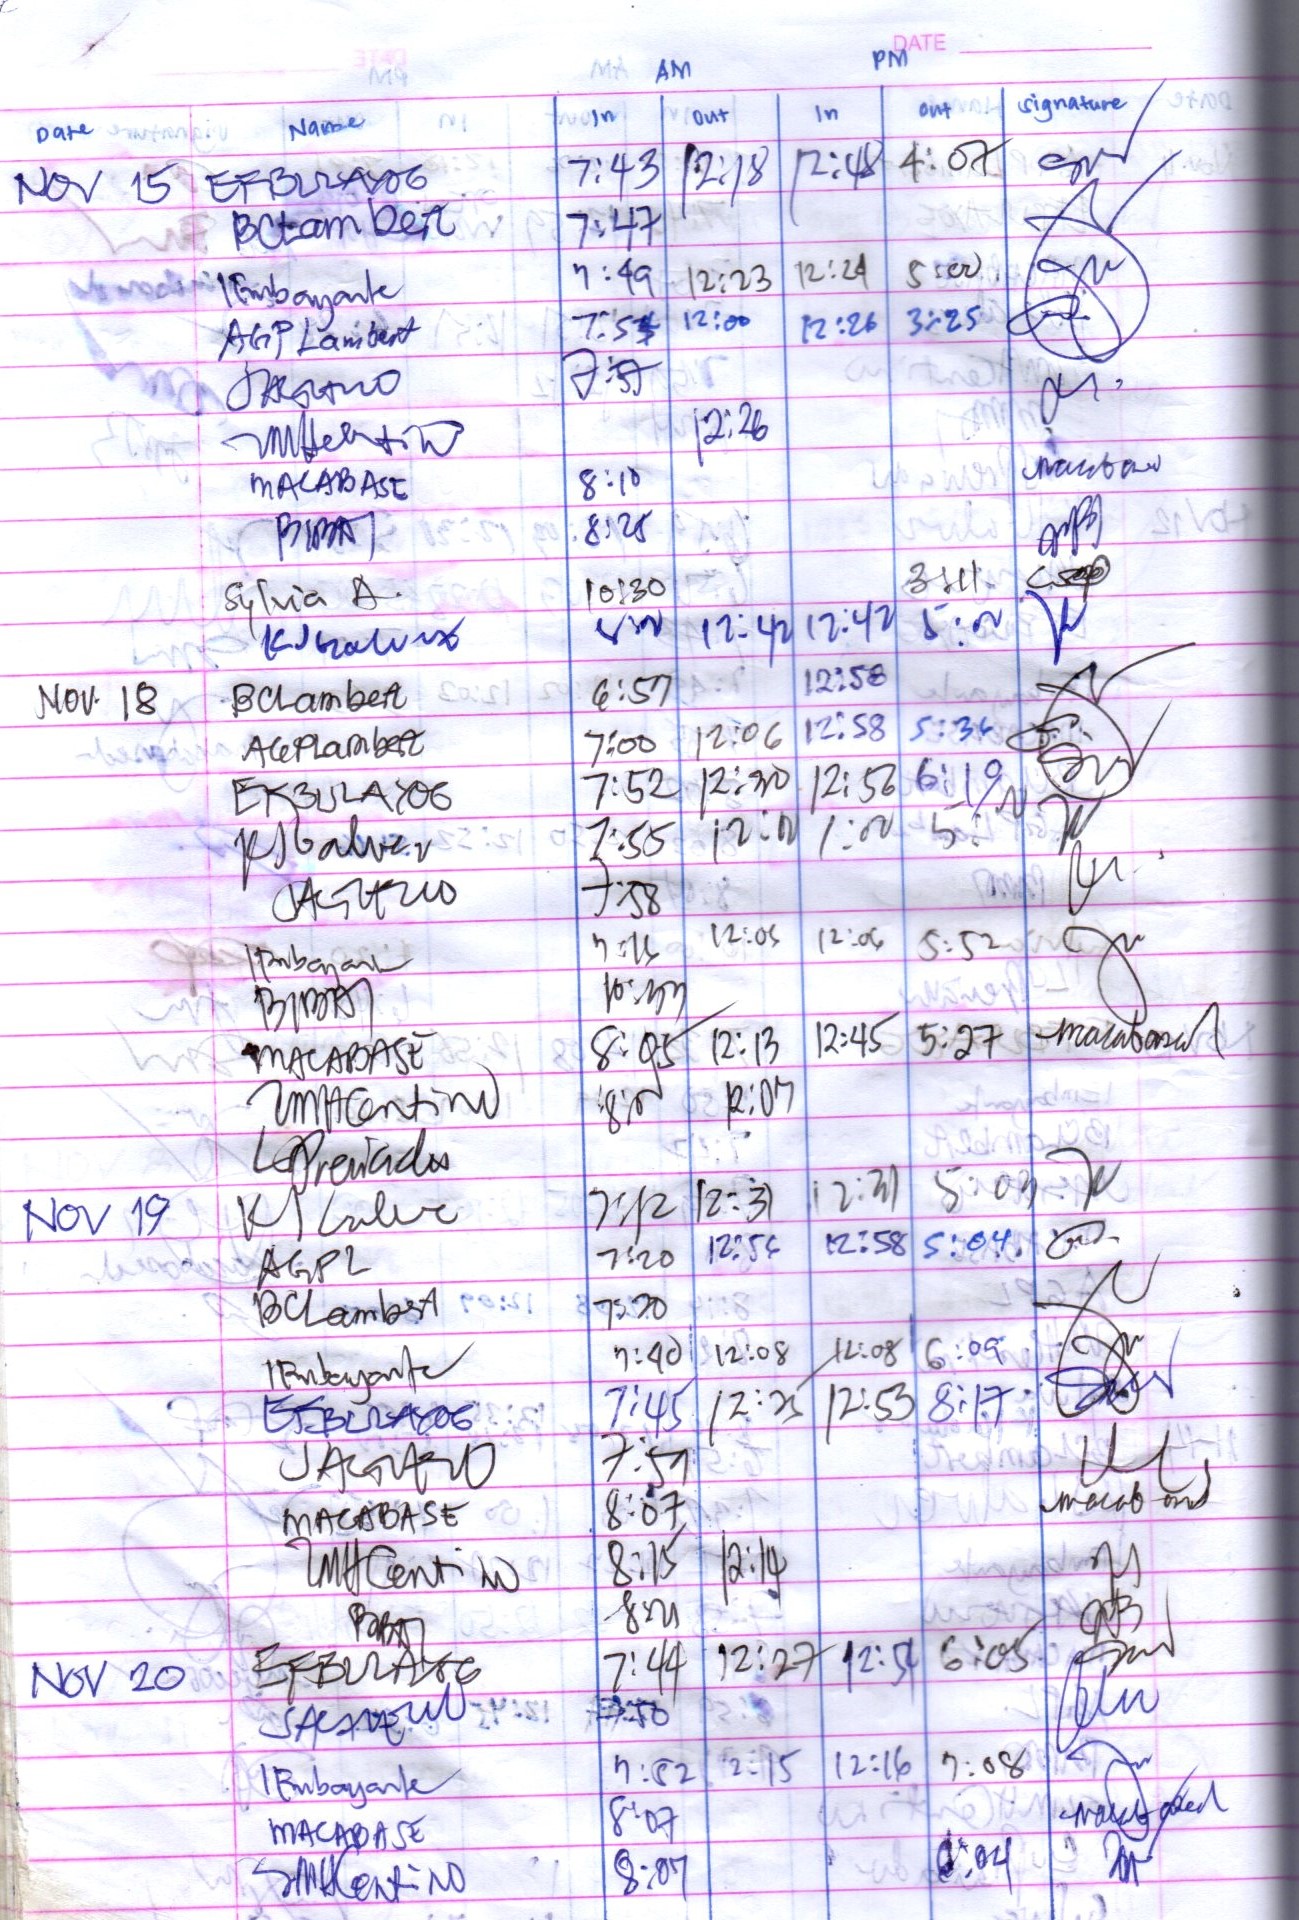 DATE
AM PM
Date Name In Out In out signature
NOV 15 EFBULAYOG 7:43 12:18 12:48 4:07
BCLambert 7:47
Embayante 7:49 12:23 12:24 5:00
AGPLambert 12:00 12:26 3:25
7:57
12:26
MACABASE 8:10
BIBAT 8:25
Sylvia A. 10:30 3:11
12:42 12:42 5:00
NOV. 18 BCLambert 6:57 12:58
AGPLambert 7:00 12:06 12:58 5:36
EFBULAYOG 7:52 12:30 12:56 6:19
KJGalvez 7:55 1:00
7:58
Embayante 12:06 12:06 5:52
BIBAT
MACABASE 8:05 12:13 12:45 5:27 macabased
JMHCentino 12:07
LPreciados
NOV 19 KJ 7:12 12:31 12:31 5:03
AGPL 7:20 12:56 12:58 5:04
BCLambert 7:20
Embayante 7:40 12:08 12:08 6:09
EFBULAYOG 7:45 12:25 12:53 8:17
7:57
MACABASE 8:07
JMHCentino 8:15 12:14
BIBAT 8:21
NOV 20 EFBULAYOG 7:44 12:27 12:54 6:05
7:50
Embayante 7:52 12:15 12:16 7:08
MACABASE 8:07
JMHCentino 8:07